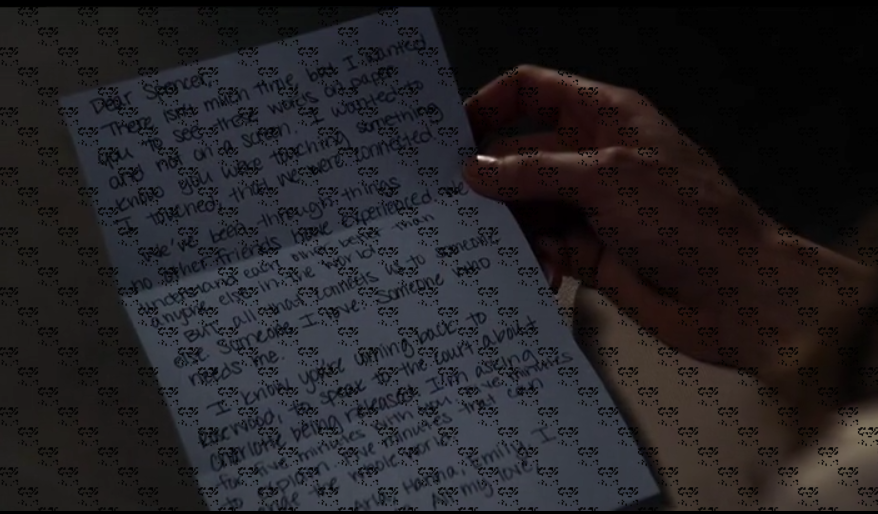 Dear Spencer,
There isn't much time but I wanted
you to see these words on paper
and not on a screen. I wanted to
know you were touching something
I touched, that we were connected.
We've been through things
no other friends have experienced. We
understand each other better than
anyone else in the world.
But all that connects us to someone
else. Someone I love. Someone who
needs me.
I know you're coming back to
Rosewood, to speak to the court about
Charlotte being released. I'm asking
for five minutes with you. Five minutes
to explain. Five minutes that can
change the whole world.
Aria, Hanna, Emily, I
All my love,